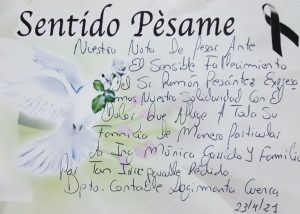 Sentido Pèsame
Nuestra Nota De Pesar Ante
El Sensible Fallecimiento
del Sr. Ramón Pesántez Expresa
mos Nuestra Solidaridad Con El
Dolor Que Aflige A Toda Su
Familia de Manera Particular
a la Ing. Mónica Garrido y Familia
Por Tan Irreparable Pérdida
Dpto. Contable Logimanta Cuenca
23/4/21